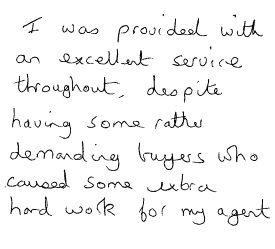 I was provided with
an excellent service
throughout, despite
having some rather
demanding buyers who
caused some extra
hard work for my agent